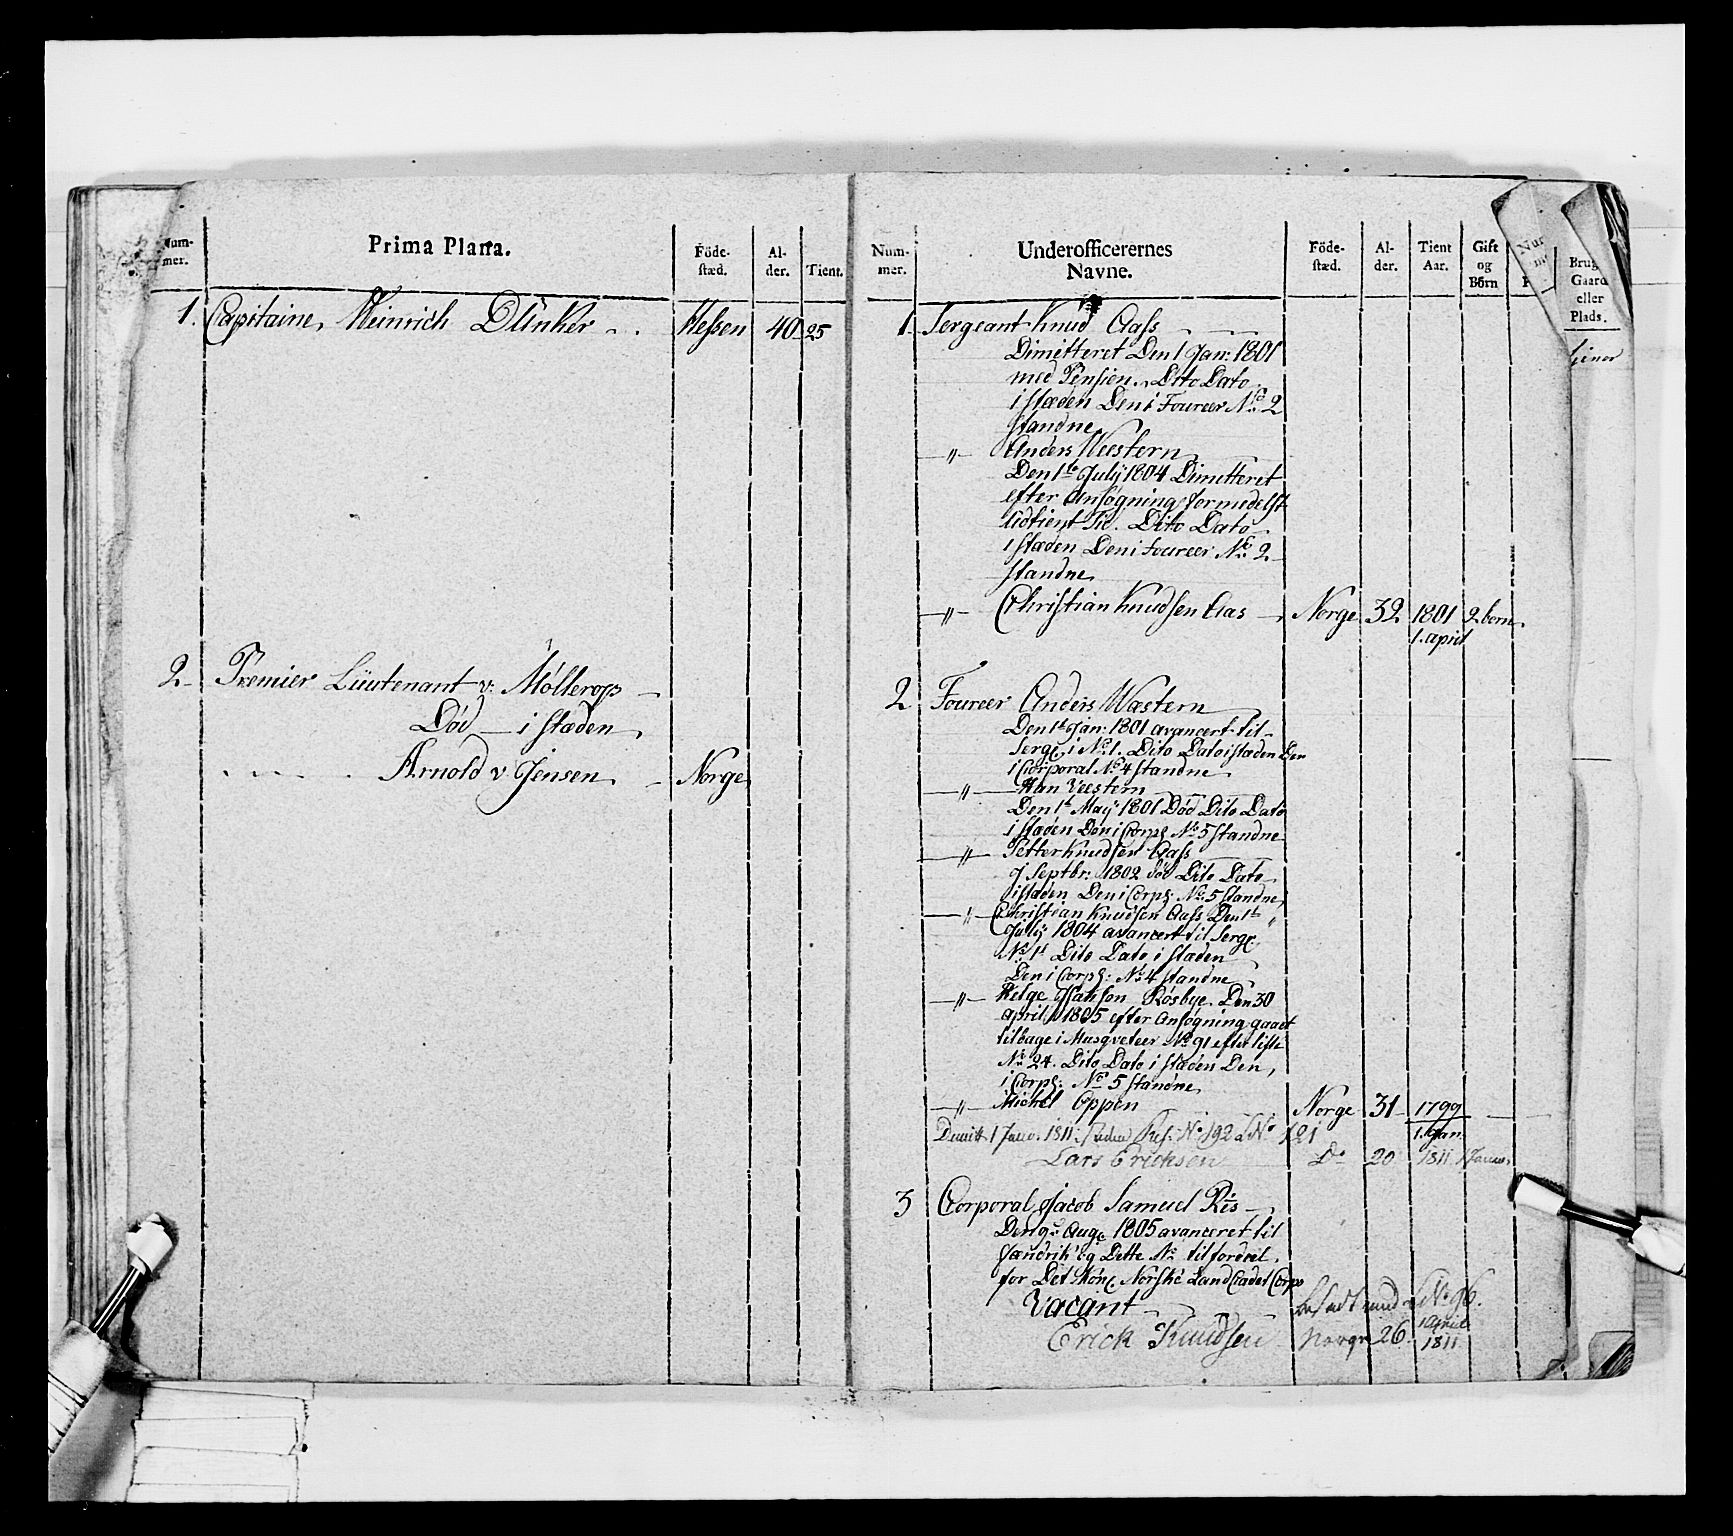 Num-
mer.
Prima Plana.
Föde-
stæd.
Al-
der.
Tient.
1. Capitaine, Heinrich Dünker - . Hessen 40 25
2 Premier Lüutenant v: Möllerop
Död - i stæden
Arnold v Jensen. Norge
Num-
mer.
Underofficerernes
Navne.
Föde-
stæd.
Al-
der.
Tient
Aar.
Gift
og
Börn
1. Sergeant Knud Aass
Dimitteret Den 1 Jan: 1801
med Pension. Dito Dato
i stæden Den i Foureer No 2
standne
" Anders Weestern
Den 1te July 1804 Dimitteret
efter Ansøgning formedelst
Udtient Tid. Dito Dato
i stæden Den i Foureer No 2
standne
" Christian Knudsen Aas Norge 32 1801 2 born.
1. april
2 Foureer Anders Wæstern
Den 1t Jan: 1801 avancert til
Serg: i No 1. Dito Dato i stæden Den
i Corporal No 4 standne
" Han Veestern
Den 1t May 1801 Död Dito Dato
i stæden Den i Corpl No 5 standne
" Petter Knudsen Aass
Septbr: 1802 död Dito Dato
i stæden Den i Corpl: No 5 standne
" Christian Knudsen Aass Den 1t
July 1804 avancert til Serg:
No 1t Dito Dato i stæden
Den i Corpl: No 4 standne
" Helge Isaksen Rösbye. Den 30
april 1805 efter Ansøgning gaaet
tilbage i Musqveteer No 91 efter liste
No 24. Dito Dato i stæden Den
i Corpl: No 5 standne
" Michel Oppen Norge 31 1799
1. Jan.
Dimitt. 1 Janv. 1811. No 192 LNo 121
Lars Ericksen Do 20 1811 1 Januar
3 Corporal Jacob Samuel Riis
Den 9 Aug 1805 avanceret til
Fændrik og Dette No tilfordeel
for Det Kong Norske Land Cadet Corps
Vacant besadt med LNo 96.
Erick Knudsen Norge 26 1 April
1811
Num
m
Brug
Gaard
eller
Plads.